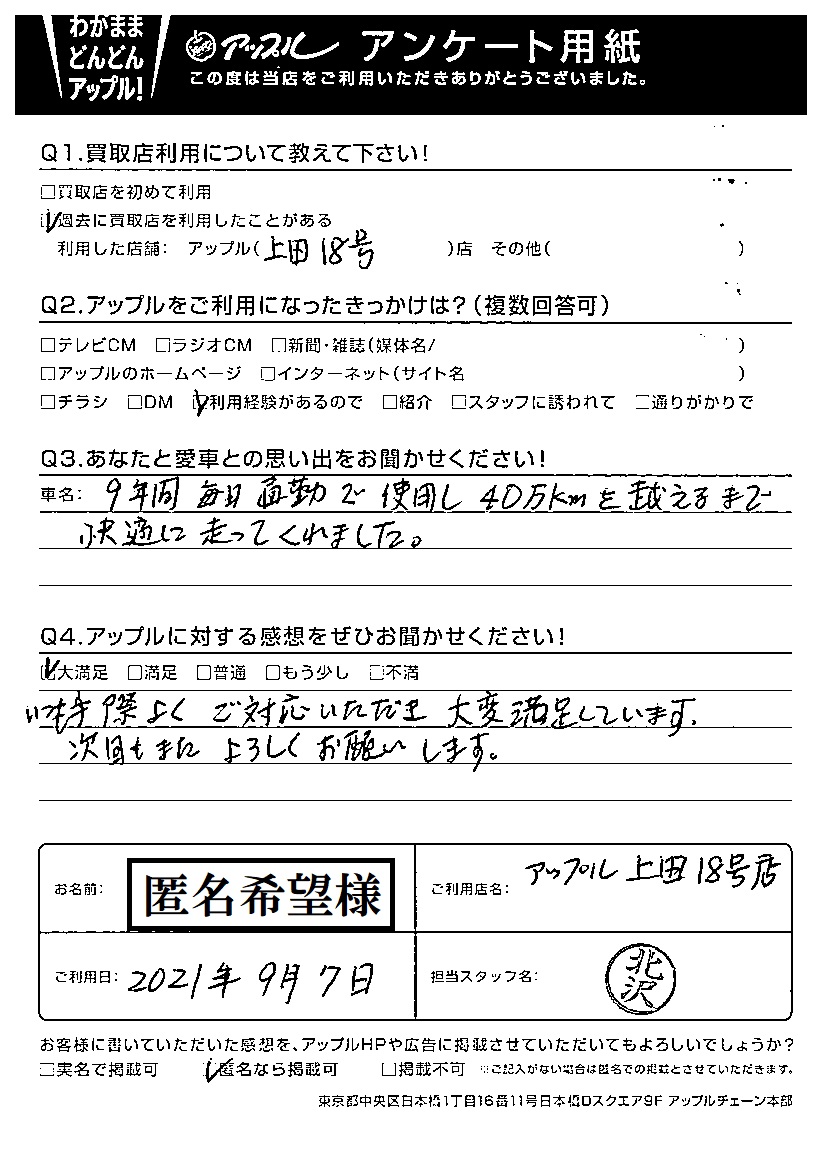 わがまま
どんどん
アップル!
アップル アンケート用紙
この度は当店をご利用いただきありがとうございました。
Q1.買取店利用について教えて下さい!
□買取店を初めて利用
☑過去に買取店を利用したことがある
利用した店舗: アップル(上田18号 )店 その他( )
Q2.アップルをご利用になったきっかけは?(複数回答可)
□テレビCM □ラジオCM □新聞・雑誌(媒体名/ )
□アップルのホームページ □インターネット(サイト名 )
□チラシ □DM ☑利用経験があるので □紹介 □スタッフに誘われて □通りがかりで
Q3.あなたと愛車との思い出をお聞かせください!
車名: 9年間 毎日 通勤で 使用し 40万kmを越えるまで
快適に走ってくれました。
Q4.アップルに対する感想をぜひお聞かせください!
☑大満足 □満足 □普通 □もう少し □不満
いつも手際よく ご対応いただき 大変満足しています。
次回もまた よろしくお願いします。
お名前: 匿名希望様
ご利用店名: アップル 上田18号店
ご利用日: 2021年 9月 7日
担当スタッフ名: 北沢
お客様に書いていただいた感想を、アップルHPや広告に掲載させていただいてもよろしいでしょうか?
□実名で掲載可 ☑匿名なら掲載可 □掲載不可 ※ご記入がない場合は匿名での掲載とさせていただきます。
東京都中央区日本橋1丁目16番11号日本橋Dスクエア9F アップルチェーン本部